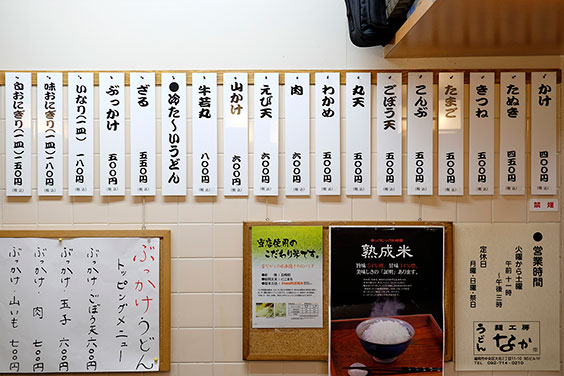 かけ 四〇〇円
たぬき 四五〇円
きつね 五〇〇円
たまご 五五〇円
こんぶ 五五〇円
ごぼう天 五〇〇円
丸天 五〇〇円
わかめ 五五〇円
肉 六〇〇円
えび天 六〇〇円
山かけ 六〇〇円
牛若丸 八〇〇円
●冷た〜いうどん
ざる 五五〇円
ぶっかけ 五〇〇円
いなり(一コ) 一八〇円
味おにぎり(一コ) 一八〇円
白おにぎり(一コ) 一五〇円
禁煙
●営業時間
火曜から土曜
午前十一時
〜午後三時
定休日
月曜・日曜・祭日
麺工房
うどん
なか
熟成米
当店使用の
こだわり米です。
ぶっかけうどん
トッピングメニュー
ぶっかけ ごぼう天 六〇〇円
ぶっかけ 玉子 六〇〇円
ぶっかけ 肉 七〇〇円
ぶっかけ 山いも 七〇〇円